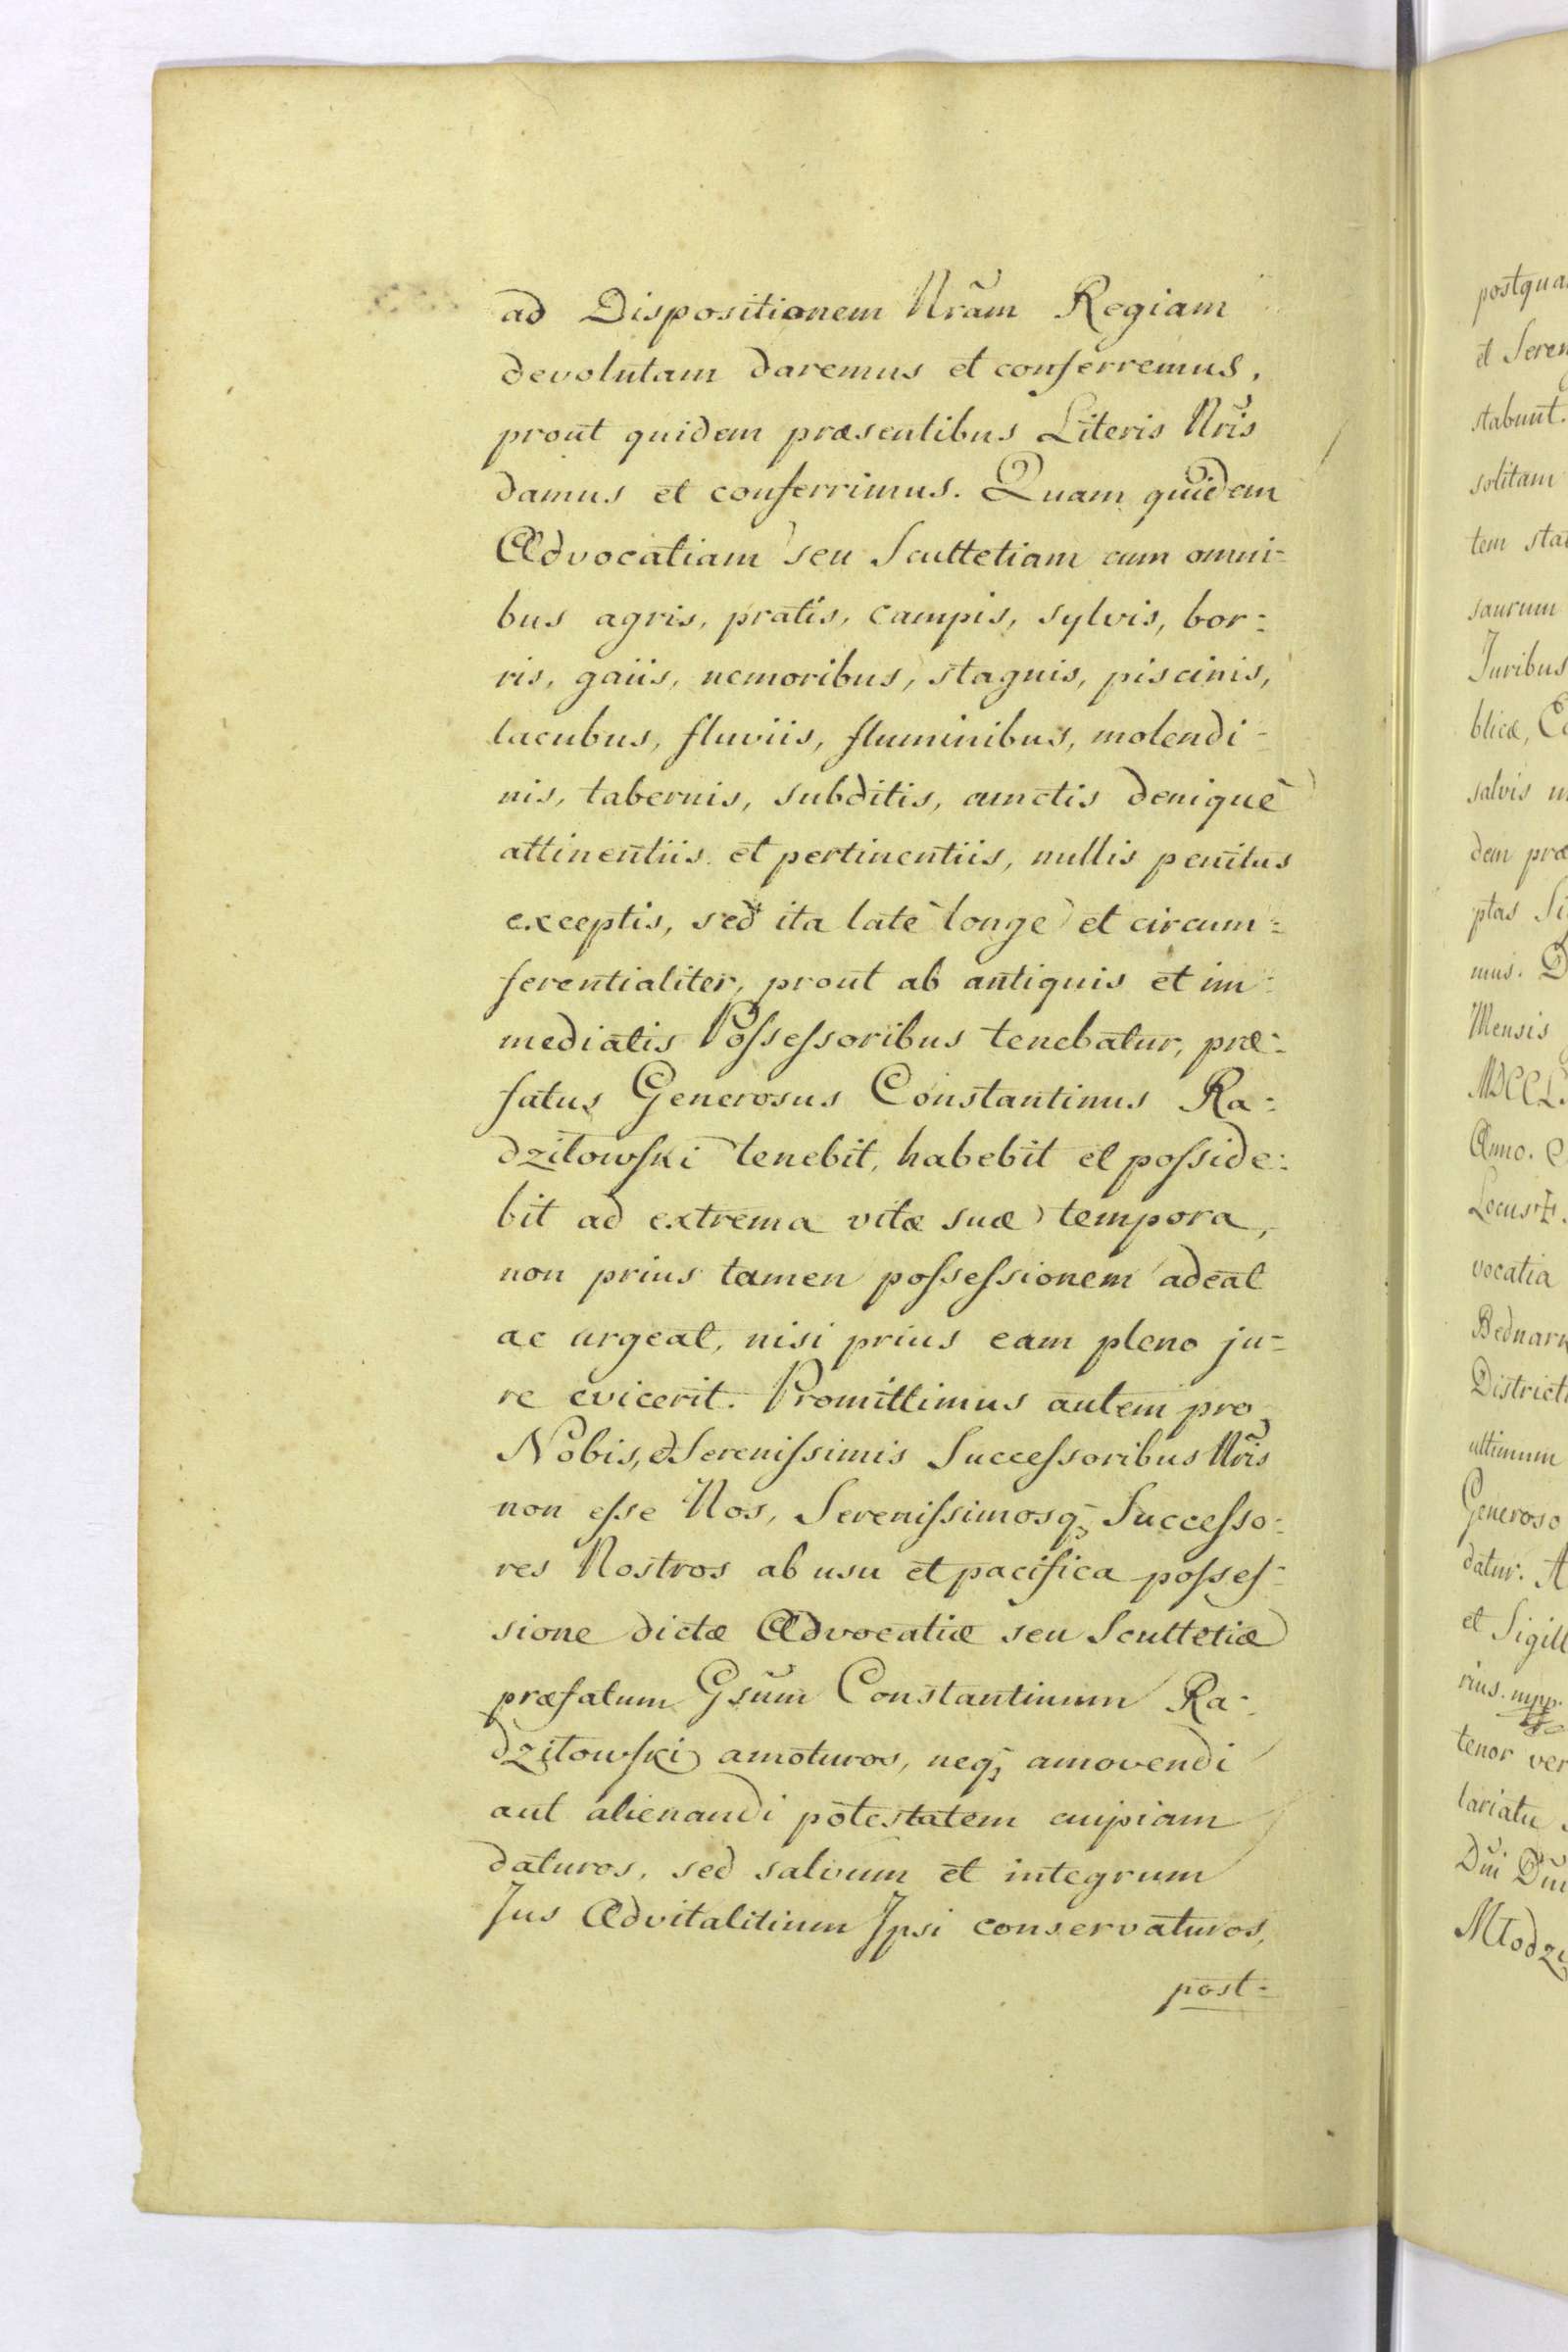 ad Dispositionem Nr̃am Regiam
devolutam daremus et conferremus,
prout quidem præsentibus Literis Nr̃is
damus et conferrimus. Quam quidem
Advocatiam seu Scultetiam cum omni=
bus agris, pratis, campis, sylvis, bor=
ris, gaiis, nemoribus, stagnis, piscinis,
lacubus, fluviis, fluminibus, molendi=
nis, tabernis, subditis, cunctis deniquè
attinentiis et pertinentiis, nullis penitus
exceptis, sed ita latè longè et circum=
ferentialiter, prout ab antiquis et im=
mediatis Poſseſsoribus tenebatur, præ=
fatus Generosus Constantinus Ra=
dziłowſki tenebit, habebit et poſside=
bit ad extrema vitæ suæ tempora,
non prius tamen poſseſsionem adeat
ac urgeat, nisi prius eam pleno ju=
re evicerit. Promittimus autem pro
Nobis, et Sereniſsimis Succeſsoribus Nr̃is
non eſse Nos, Sereniſsimosq; Succeſso=
res Nostros ab usu et pacifica poſseſ=
sione dictæ Advocatiæ seu Scultetiæ
præfatum Gsũm Constantinum Ra=
dziłowſki amoturos, neq; amovendi
aut alienandi potestatem cuipiam
daturos, sed salvum et integrum
Jus Advitalitium Ipsi conservaturos,
post=
et Seren
stabunt.
solitam
tem sta
saurum
Juribus
blicæ, C
salvis
dem præ
ptas Si
mus. D
Mensis
Anno.
Locus
vocatia
Bednar
District
ultimum
Generoso
datur. A
et Sigill
rius. mpp.
tenor ver
lariatu
Dni Dni
Młodzi